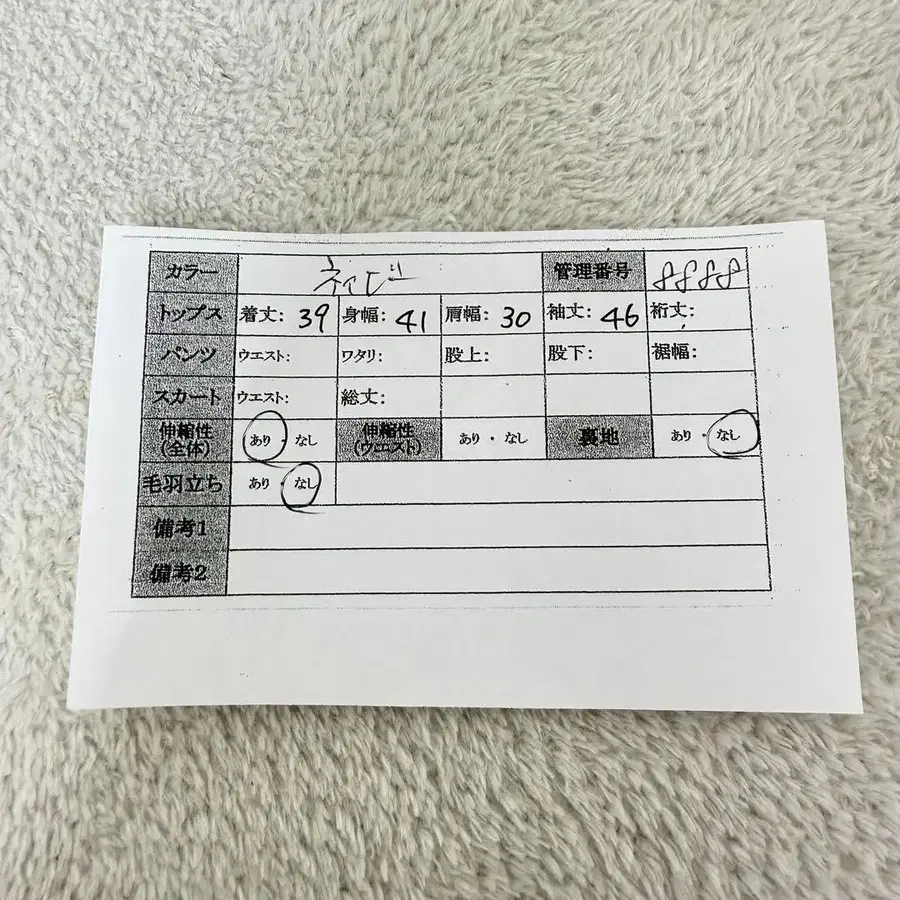 カラー ネイビー 管理番号 8888
トップス 着丈: 39 身幅: 41 肩幅: 30 袖丈: 46 裄丈:
パンツ ウエスト: ワタリ: 股上: 股下: 裾幅:
スカート ウエスト: 総丈:
伸縮性(全体) あり・なし 伸縮性(ウエスト) あり・なし 裏地 あり・なし
毛羽立ち あり・なし
備考1
備考2